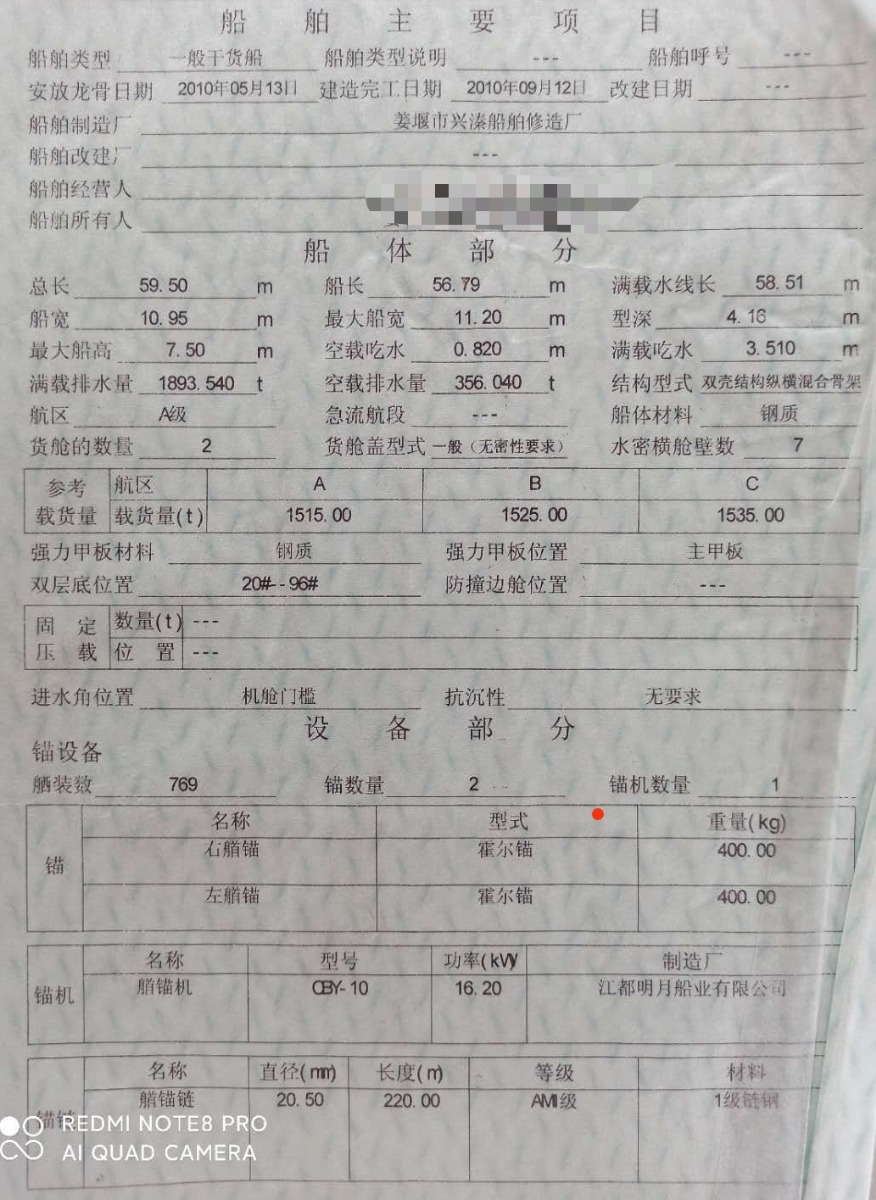 船舶主要项目
船舶类型 一般干货船 船舶类型说明 --- 船舶呼号 ---
安放龙骨日期 2010年05月13日 建造完工日期 2010年09月12日 改建日期 ---
船舶制造厂 姜堰市兴溱船舶修造厂
船舶改建厂 ---
船舶经营人
船舶所有人
船体部分
总长 59.50 m 船长 56.79 m 满载水线长 58.51 m
船宽 10.95 m 最大船宽 11.20 m 型深 4.16 m
最大船高 7.50 m 空载吃水 0.820 m 满载吃水 3.510 m
满载排水量 1893.540 t 空载排水量 356.040 t 结构型式 双壳结构纵横混合骨架
航区 A级 急流航段 --- 船体材料 钢质
货舱的数量 2 货舱盖型式 一般（无密性要求） 水密横舱壁数 7
参考 航区 A B C
载货量 载货量(t) 1515.00 1525.00 1535.00
强力甲板材料 钢质 强力甲板位置 主甲板
双层底位置 20#--96# 防撞边舱位置 ---
固定 数量(t) ---
压载 位置 ---
进水角位置 机舱门槛 抗沉性 无要求
设备部分
锚设备
舾装数 769 锚数量 2 锚机数量 1
名称 型式 重量(kg)
右艏锚 霍尔锚 400.00
锚
左艏锚 霍尔锚 400.00
名称 型号 功率(kW) 制造厂
锚机 艏锚机 CBY-10 16.20 江都明月船业有限公司
名称 直径(mm) 长度(m) 等级 材料
锚链 艏锚链 20.50 220.00 AM1级 1级链钢
REDMI NOTE8 PRO
AI QUAD CAMERA